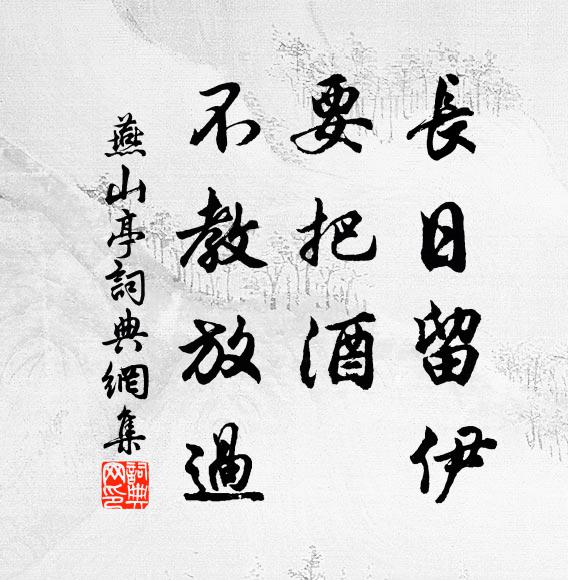 長日留伊
要把酒
不教放過
燕山亭詞典網集
詞典网印